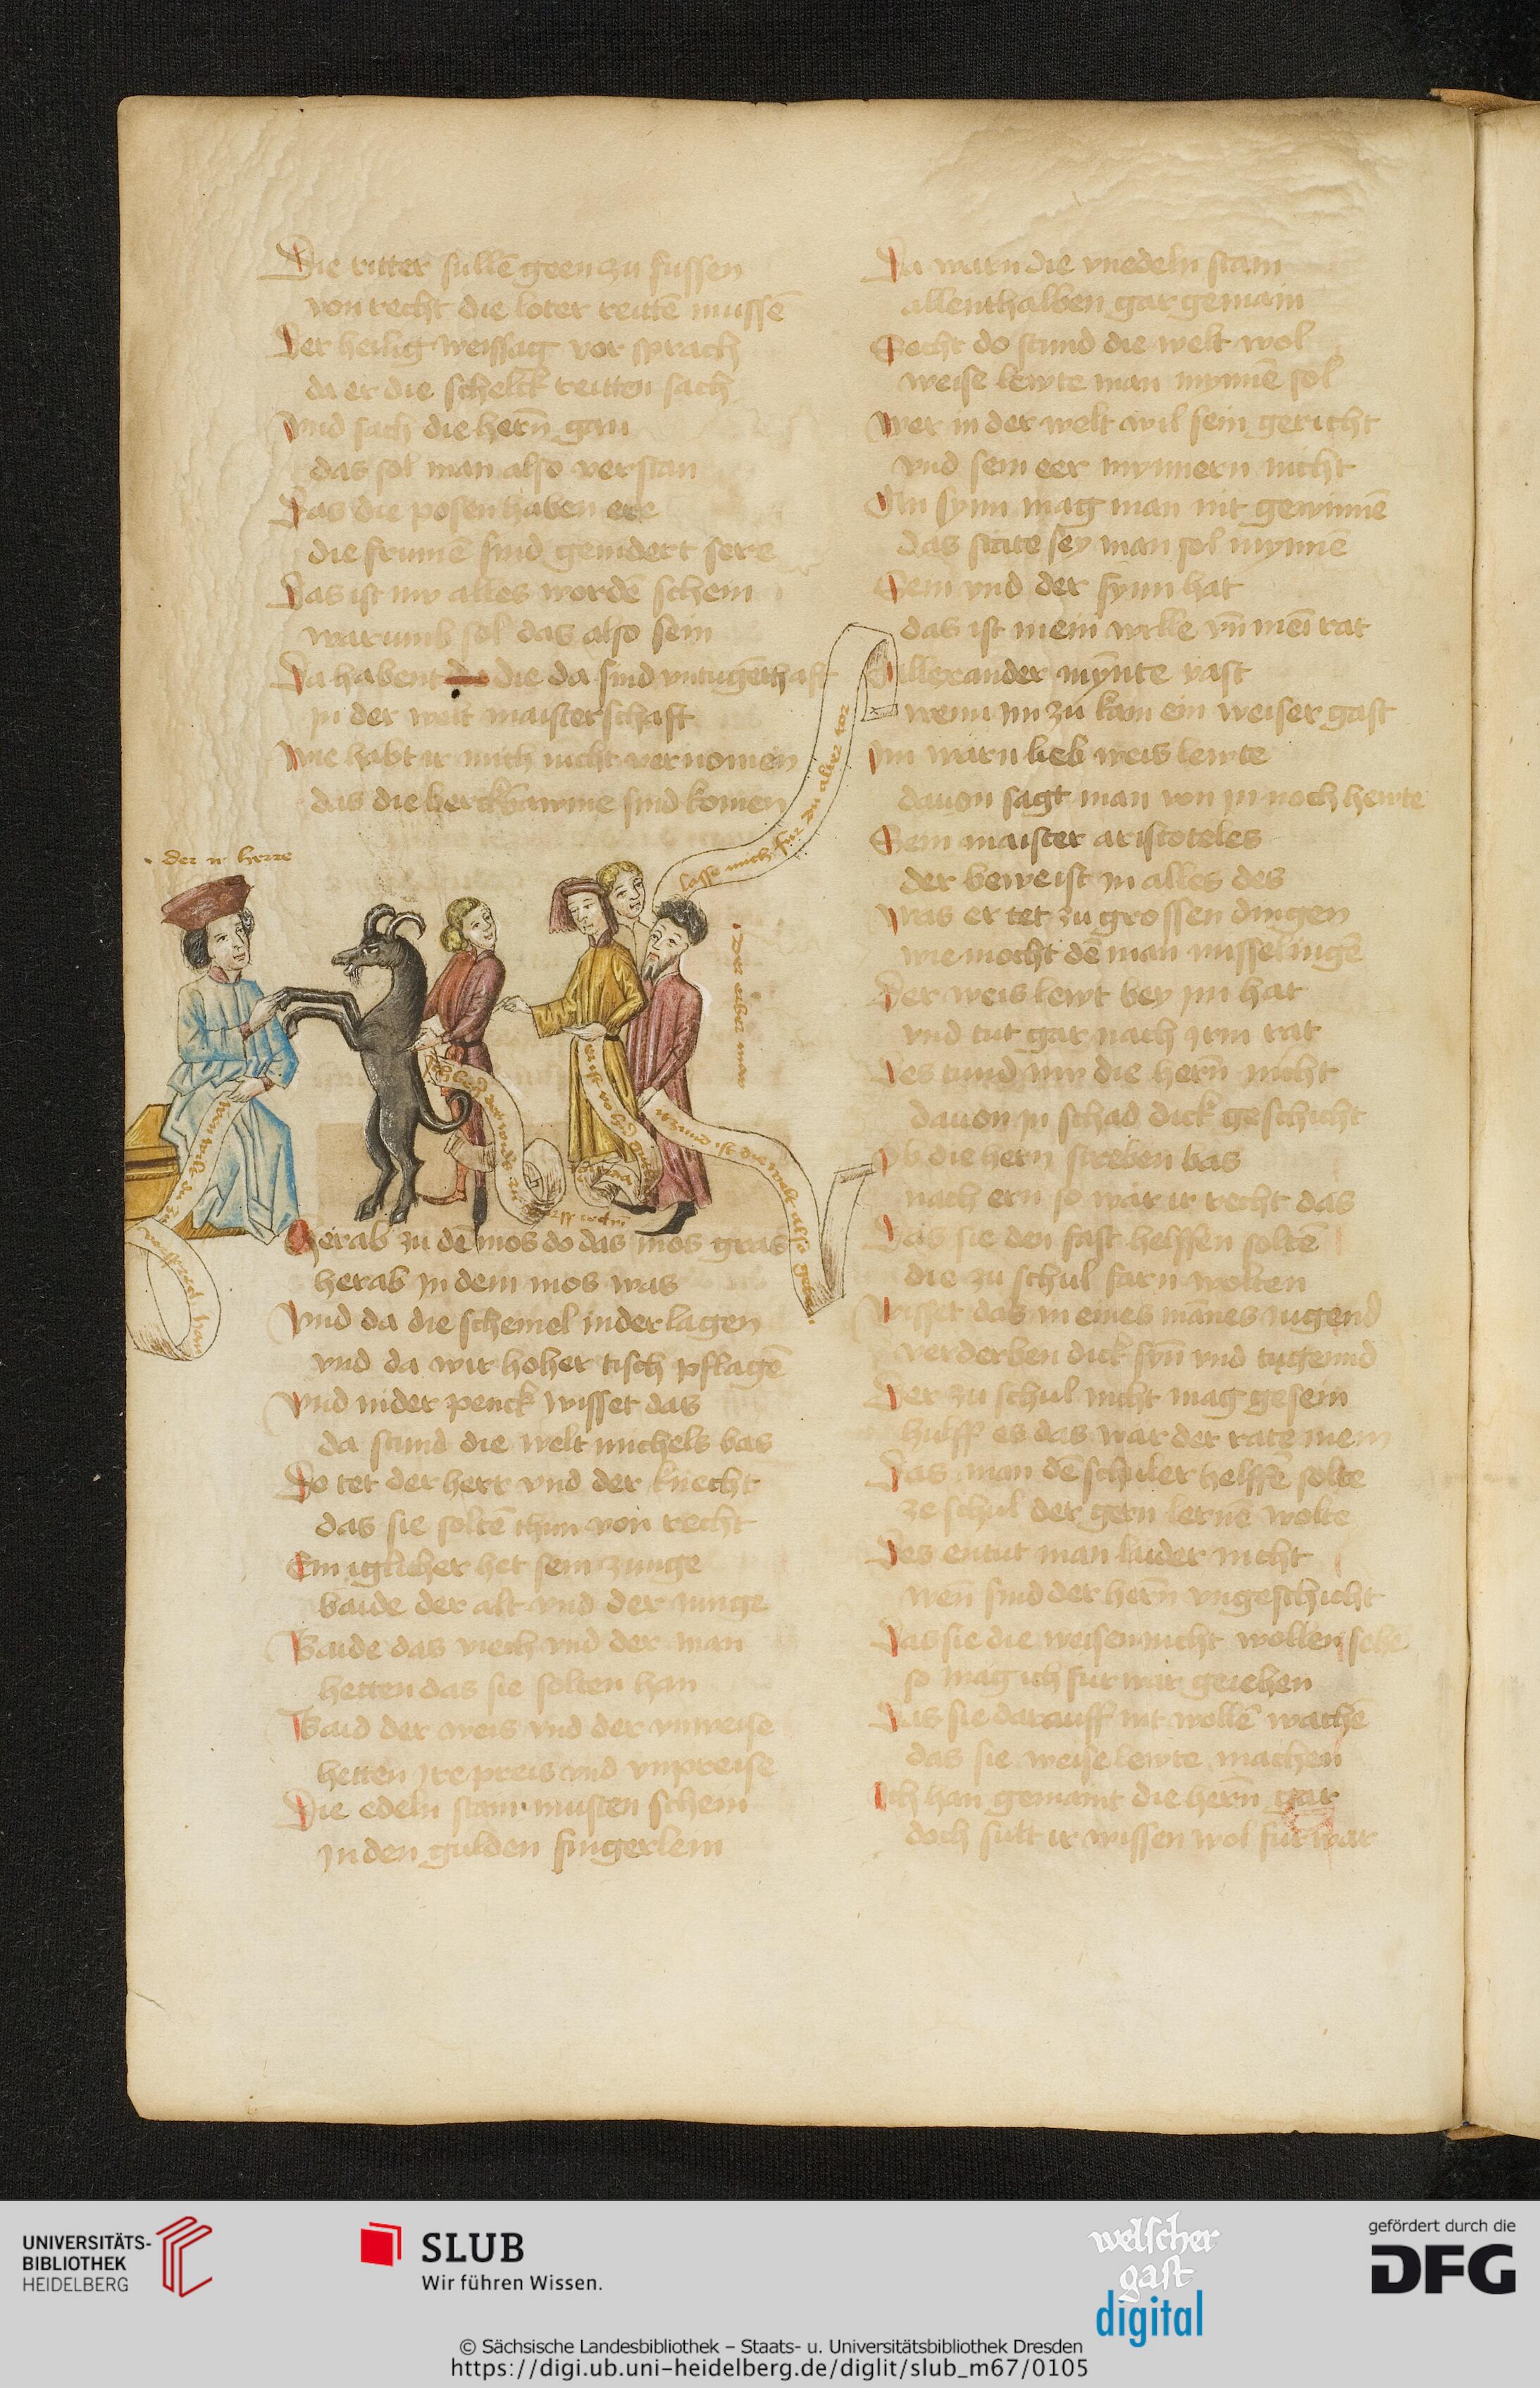 Die ritter sullē geen zu fussen
von recht die loter reittē mussē
Der heilig weissag vor sprach
da er die schelck reitten sach
Vnd sach die hern̄ gan
das sol man also verstan
Das die posen haben ere
die frumē sind genidert sere
Das ist nw alles wordē schein
warumb sol das also sein
Da habent die da sind vntugēthaft
jn der welt maisterschafft
Wie habt ir mich nicht vernomen
das die berckbawme sind komen
der n herre
lasse mich fur du alber tor
der erber man
Herab zu dē mos do das mos gras
herab jn dem mos was
Vnd da die schemel nider lagen
vnd da wir hoher tisch pflagē
Vnd nider penck wisset das
da stund die welt michels bas
Do tet der herr vnd der knecht
das sie soltē thun von recht
Ein iglicher het sein zunge
baide der alt vnd der junge
Baide das viech vnd der man
hetten das sie solten han
Baid der weis vnd der vnweise
hetten jre preis vnd vnpreise
Die edeln stain musten schein
jn den gulden fingerlein
Da warn die vnedeln stain
allenthalben gar gemain
Secht do stund die welt wol
weise lewte man mynnē sol
Wer in der welt wil sein gericht
vnd sein eer mynnern nicht
An synn mag man nit gewinnē
das state sey man sol mynnē
Sein vnd der synn hat
das ist mein wille vn̄ mei͞ rat
Allexander mȳnte vast
wenn im zu kam ein weiser gast
Im warn lieb weis lewte
dauon sagt man von jn noch hewte
Sein maister aristoteles
der beweist jn alles des
Was er tet zu grossen dingen
wie mocht dē man misselingē
Der weis lewt bey im hat
vnd tut gar nach jrm rat
Des tund nw die hern̄ nicht
dauon jn schad dick geschicht
Ob die hern streben bas
nach ern so wār ir recht das
Das sie den fast helffen soltē
die zu schul farn wolten
Wisset das in eines mānes iugend
verderben dick syn̄ vnd tugennd
Der zu schul nicht mag gesein
hulff es das war der rate mein
Das man dē schuler helffē solte
ze schul der gern lernē wolte
Des entut man laider nicht
wen̄ sind der hern̄ vngeschicht
Das sie die weisen nicht wollen sehē
so mag ich fur war geiehen
Das sie darauff nit wollē wachē
das sie weise lewte machen
Ich han gemaint die hern̄ gar
doch sult ir wissen wol fur war
UNIVERSITÄTS-
BIBLIOTHEK
HEIDELBERG
SLUB
Wir führen Wissen.
welscher
gast
digital
gefördert durch die
DFG
© Sächsische Landesbibliothek – Staats- u. Universitätsbibliothek Dresden
https://digi.ub.uni-heidelberg.de/diglit/slub_m67/0105